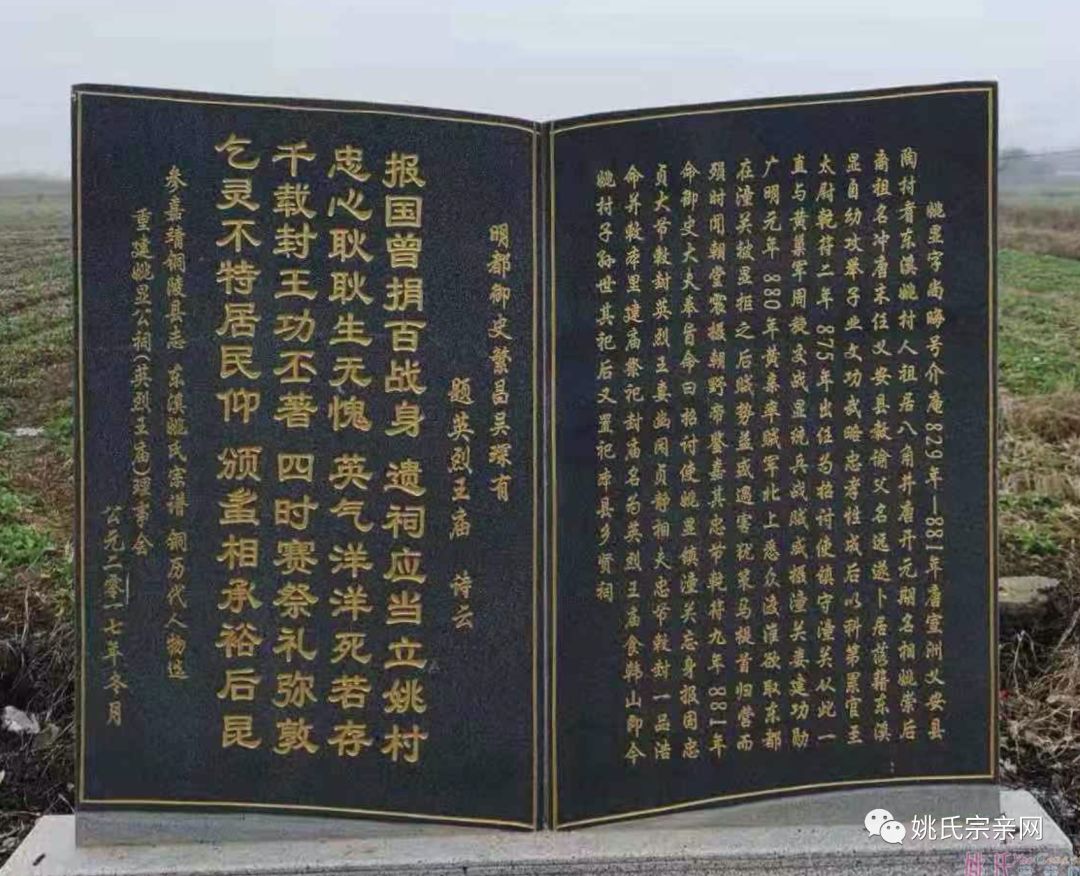 姚显字尚晦号介庵829年—881年唐宣洲义安县
陶村耆东溪姚村人祖居八角井唐开元朝名相姚崇后
裔祖名冲唐末任义安县教谕父名远遂卜居落籍东溪
显自幼攻举子业文功武略忠孝性成后以科第累官至
太尉乾符二年 875年出任为招讨使镇守潼关从此一
直与黄巢军周旋交战显统兵战贼威摄潼关娄建功勋
广明元年 880年黄巢率贼军北上悉众渡淮欲取东都
在潼关被显拒之后贼势益或遇害犹策马提首归营而
殒时闻朝堂震摄朝野帝鉴嘉其忠节乾符九年 881年
命御史大夫奉旨命曰招讨使姚显镇潼关忘身报国忠
贞大节敕封英烈王妻幽闲贞静相夫忠节敕封一品浩
命并敕葬里建庙祭祀封庙名为英烈王庙食韩山即今
姚村子孙世其祀后又置祀本县乡贤祠
明都御史繁昌吴琛有
题英烈王庙 诗云
报国曾捐百战身 遗祠应当立姚村
忠心耿耿生无愧 英气洋洋死若存
千载封王功丕著 四时赛祭礼弥敦
乞灵不特居民仰 颁胙相承裕后昆
参嘉靖铜陵县志 东溪姚氏宗谱 铜历代人物选
重建姚显公祠(英烈王庙)理事会
公元二零一七年冬月
姚氏宗亲网